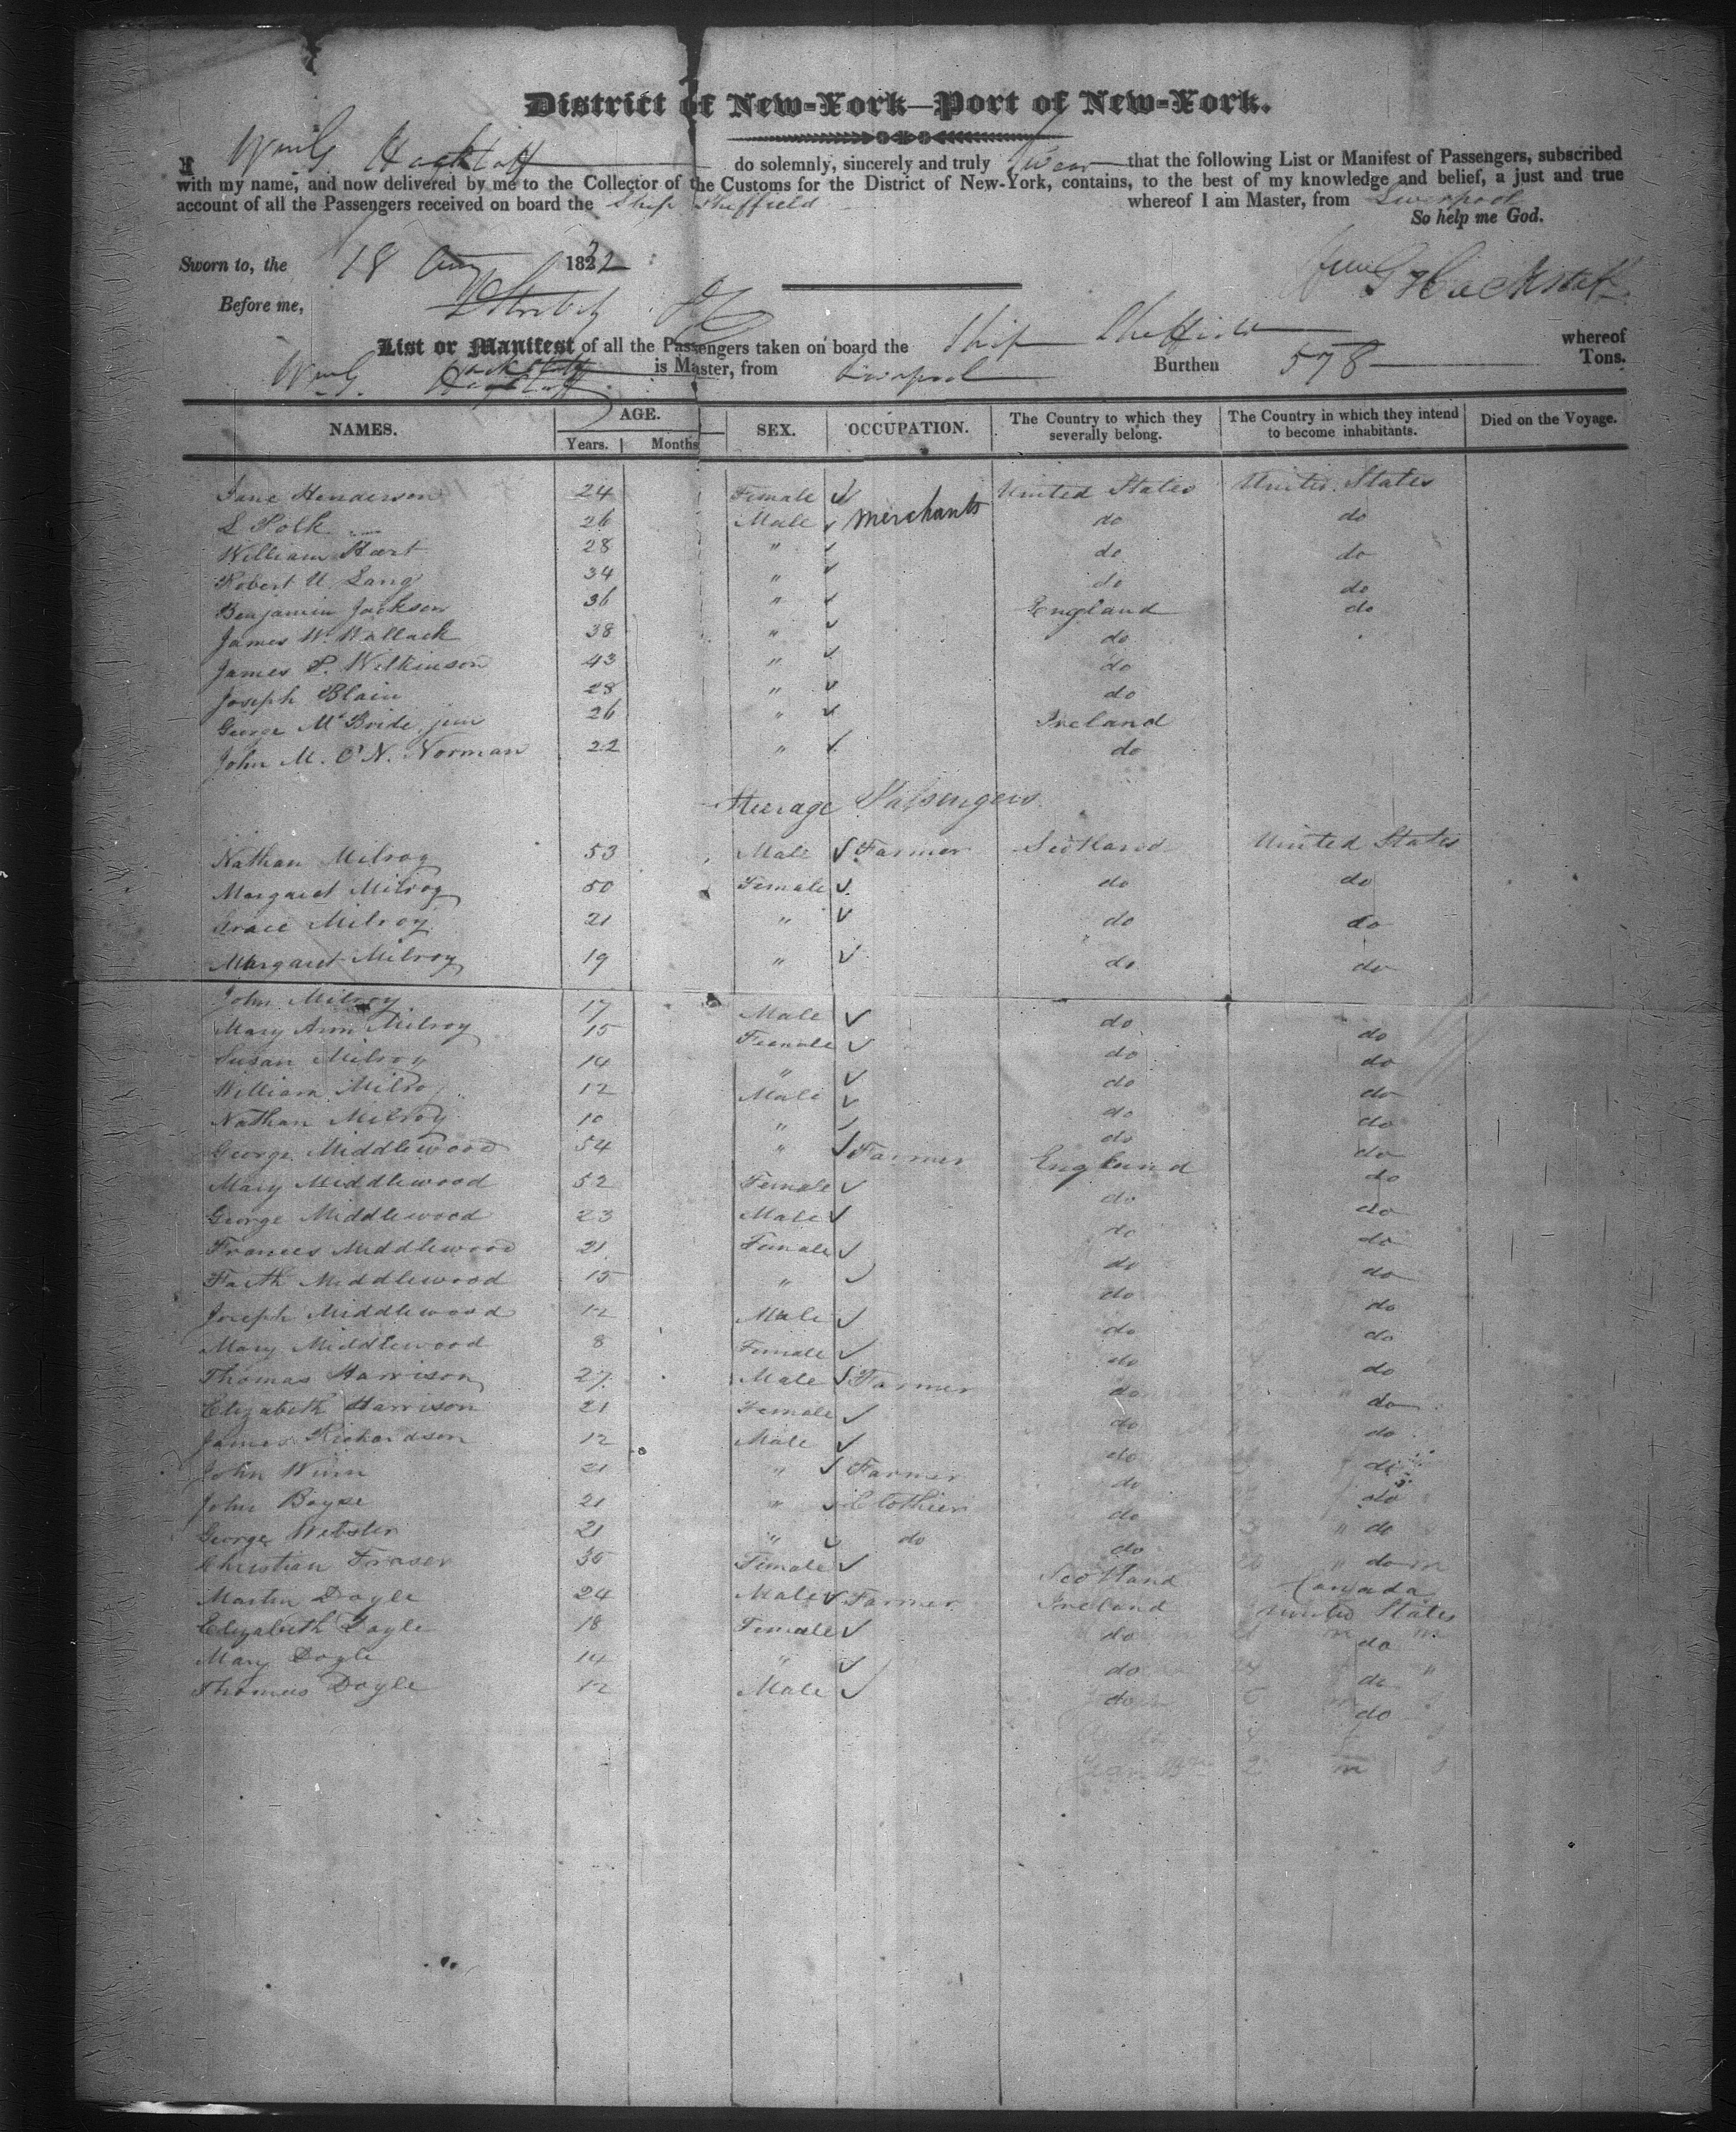 District of New-York—Port of New-York.
I Wm G. Hackstaff do solemnly, sincerely and truly swear that the following List or Manifest of Passengers, subscribed
with my name, and now delivered by me to the Collector of the Customs for the District of New-York, contains, to the best of my knowledge and belief, a just and true
account of all the Passengers received on board the Ship Sheffield whereof I am Master, from Liverpool
So help me God.
Sworn to, the 18 Aug 1832
Wm G Hackstaff
Before me,
List or Manifest of all the Passengers taken on board the Ship Sheffield whereof
Wm G. Hackstaff is Master, from Liverpool Burthen 578 Tons.
NAMES. AGE. SEX. OCCUPATION. The Country to which they severally belong. The Country in which they intend to become inhabitants. Died on the Voyage.
Years. Months
Jane Henderson 24 Female United States United States
L Polk 26 Male Merchants do do
William Hart 28 " do do
Robert U Lang 34 " do do
Benjamin Jackson 36 " England do
James W. Wallack 38 " do
James P. Wilkinson 43 " do
Joseph Blain 28 " do
George McBride jun 26 " Ireland
John M. O'N. Norman 22 " do
Steerage Passengers
Nathan Milroy 53 Male Farmer Scotland United States
Margaret Milroy 50 Female do do
Grace Milroy 21 " do do
Margaret Milroy 19 " do do
John Milroy 17 Male do do
Mary Ann Milroy 15 Female do do
Susan Milroy 14 " do do
William Milroy 12 Male do do
Nathan Milroy 10 " do do
George Middlewood 54 " Farmer England do
Mary Middlewood 52 Female do do
George Middlewood 23 Male do do
Frances Middlewood 21 Female do do
Faith Middlewood 15 " do do
Joseph Middlewood 12 Male do do
Mary Middlewood 8 Female do do
Thomas Harrison 27 Male Farmer do do
Elizabeth Harrison 21 Female do do
James Richardson 12 Male do do
John Winn 21 " Farmer do do
John Boyse 21 " Clothier do do
George Webster 21 " do do do
Christian Fraser 30 Female Scotland Canada
Martin Doyle 24 Male Farmer Ireland United States
Elizabeth Doyle 18 Female do do
Mary Doyle 14 " do do
Thomas Doyle 12 Male do do